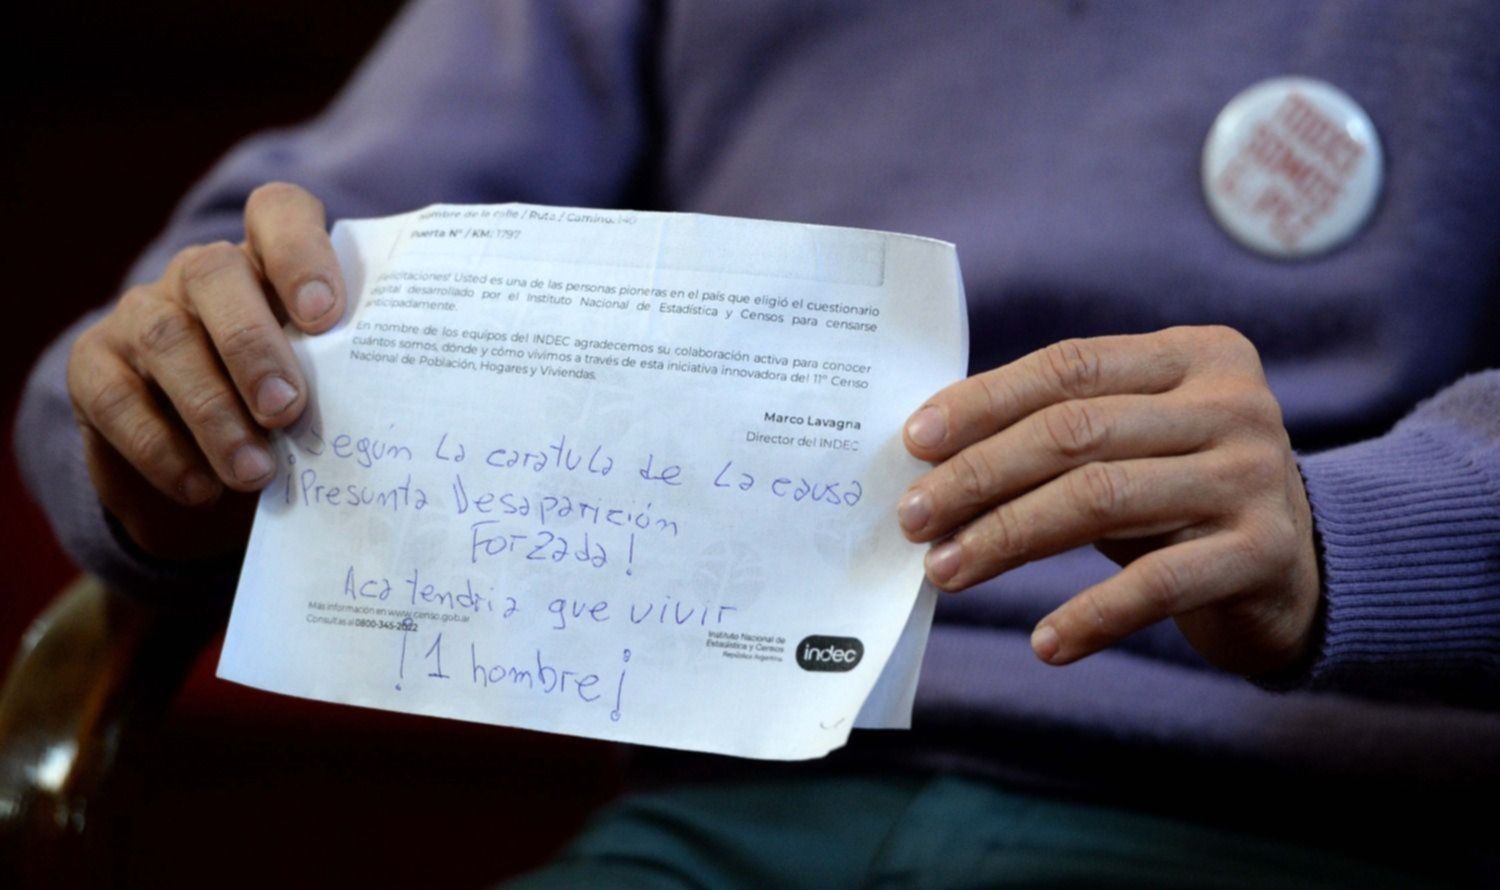 Nombre de la calle / Ruta / Camino: 140
Puerta N° / KM: 1797
¡Felicitaciones! Usted es una de las personas pioneras en el país que eligió el cuestionario
digital desarrollado por el Instituto Nacional de Estadística y Censos para censarse
anticipadamente.
En nombre de los equipos del INDEC agradecemos su colaboración activa para conocer
cuántos somos, dónde y cómo vivimos a través de esta iniciativa innovadora del 11° Censo
Nacional de Población, Hogares y Viviendas.
Marco Lavagna
Director del INDEC
Según La caratula de La causa
¡Presunta Desaparición
Forzada!
Aca tendria que vivir
Más información en www.censo.gob.ar
Consultas al 0800-345-2022
¡1 hombre¡
Instituto Nacional de
Estadística y Censos
República Argentina
indec
TODOS
SOMOS